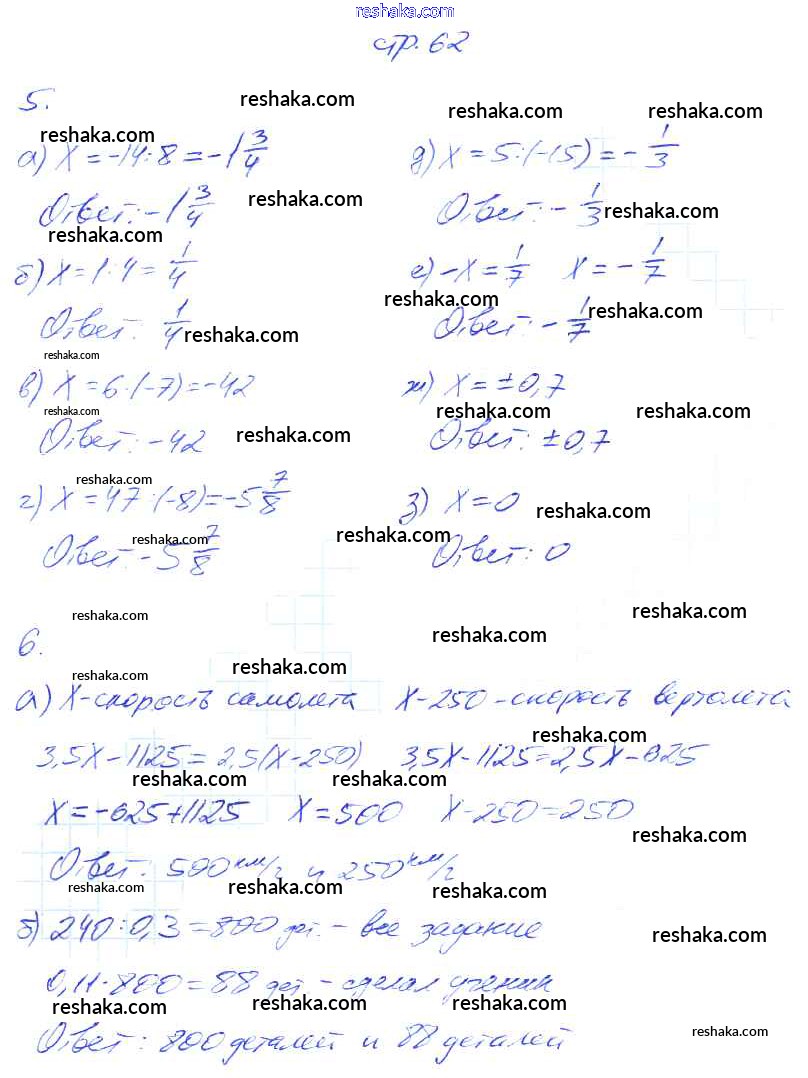 reshaka.com
стр. 62
5.
reshaka.com reshaka.com reshaka.com
reshaka.com
а) X = -14:8 = -1 3/4
д) X = 5:(-15) = - 1/3
Ответ: -1 3/4 reshaka.com
Ответ: - 1/3 reshaka.com
reshaka.com
б) X = 1·4 = 1/4
е) -X = 1/7 X = - 1/7
reshaka.com
Ответ: 1/4 reshaka.com
Ответ: - 1/7 reshaka.com
reshaka.com
в) X = 6·(-7) = -42
ж) X = ±0,7
reshaka.com reshaka.com reshaka.com
Ответ: -42 reshaka.com
Ответ: ±0,7
reshaka.com
г) X = 47:(-8) = -5 7/8
з) X = 0 reshaka.com
reshaka.com reshaka.com
Ответ: -5 7/8
Ответ: 0
reshaka.com reshaka.com reshaka.com
6.
reshaka.com reshaka.com
а) X - скорость самолета X - 250 - скорость вертолета
reshaka.com
3,5X - 1125 = 2,5(X - 250) 3,5X - 1125 = 2,5X - 625
reshaka.com reshaka.com
X = -625 + 1125 X = 500 X - 250 = 250
reshaka.com
Ответ: 500 км/г и 250 км/г
reshaka.com reshaka.com reshaka.com
б) 240:0,3 = 800 дет. - все задание
reshaka.com
0,11·800 = 88 дет - сделал ученик
reshaka.com reshaka.com reshaka.com
Ответ: 800 деталей и 88 деталей
reshaka.com